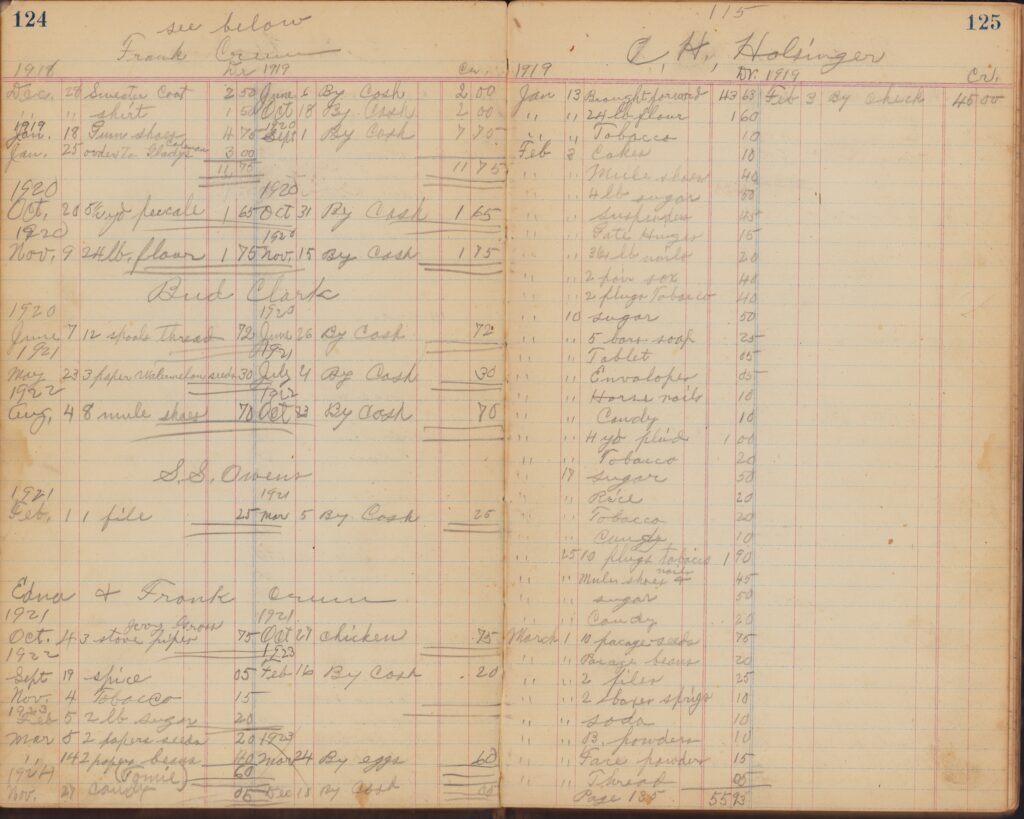 124
see below
Frank Crum
1918 Dr 1919 Cr.
Dec. 26 Sweater Coat 2 50 June 6 By Cash 2 00
" " shirt 1 50 Oct 18 By Cash 2 00
1919 1920
Jan. 18 Gum shoes 4 75 Sept 1 By Cash 7 75
Jan. 25 order to Gladys 3 00
11 75 11 75
1920 1920
Oct. 20 yd percale 1 65 Oct 31 By Cash 1 65
1920 1920
Nov. 9 24 lb. flour 1 75 Nov. 15 By Cash 1 75
Bud Clark
1920 1920
June 7 12 spools thread 72 June 26 By Cash 72
1921 1921
May 23 3 paper Watermelon seeds 30 July 4 By Cash 30
1922 1922
Aug. 4 8 mule shoes 70 Oct 23 By Cash 70
S.S. Owens
1921 1921
Feb. 1 1 file 25 Mar 5 By Cash 25
Edna & Frank Crum
1921 1921
Oct. 4 3 stove pipes 75 Oct 27 chicken 75
1922 1923
Sept 19 spice 05 Feb 16 By Cash 20
Nov. 4 Tobacco 15
1923 20
Feb 5 2 lb sugar
Mar 8 2 papers seeds 20 1923
" 14 2 papers beans 60 Mar 24 By eggs 60
1924 (Tonnie) 60
Nov. 27 Candy 05 Dec 18 By Cash 05
115
125
C. H. Holsinger
1919 Dr. 1919 Cr.
Jan 13 Brought forward 43 63 Feb 3 By Check 45 00
" " 24 lb flour 1 60
" " Tobacco 10
Feb 3 Cakes 10
" " Mule shoes 40
" " 4 lb sugar 50
" " Suspenders 45
" " Gate Hinges 15
" " lb nails 20
" " 2 pair sox 40
" " 2 plugs Tobacco 40
" 10 sugar 50
" " 5 bars soap 25
" " Tablet 05
" " Envalopes 05
" " Horse nails 10
" " Candy 10
" " 4 yd plaid 1 00
" " Tobacco 20
" 17 sugar 50
" " Rice 20
" " Tobacco 20
" " Candy 10
" 25 10 plugs tobacco 1 90
" " Mule shoes & nails 45
" " sugar 50
" " Candy 20
March 1 10 pacage seeds 75
" " Pacage beans 20
" " 2 files 25
" " 2 boxes sprigs 10
" " soda 10
" " B. powders 10
" " Face powder 15
" " Thread 05
Page 135 55 93